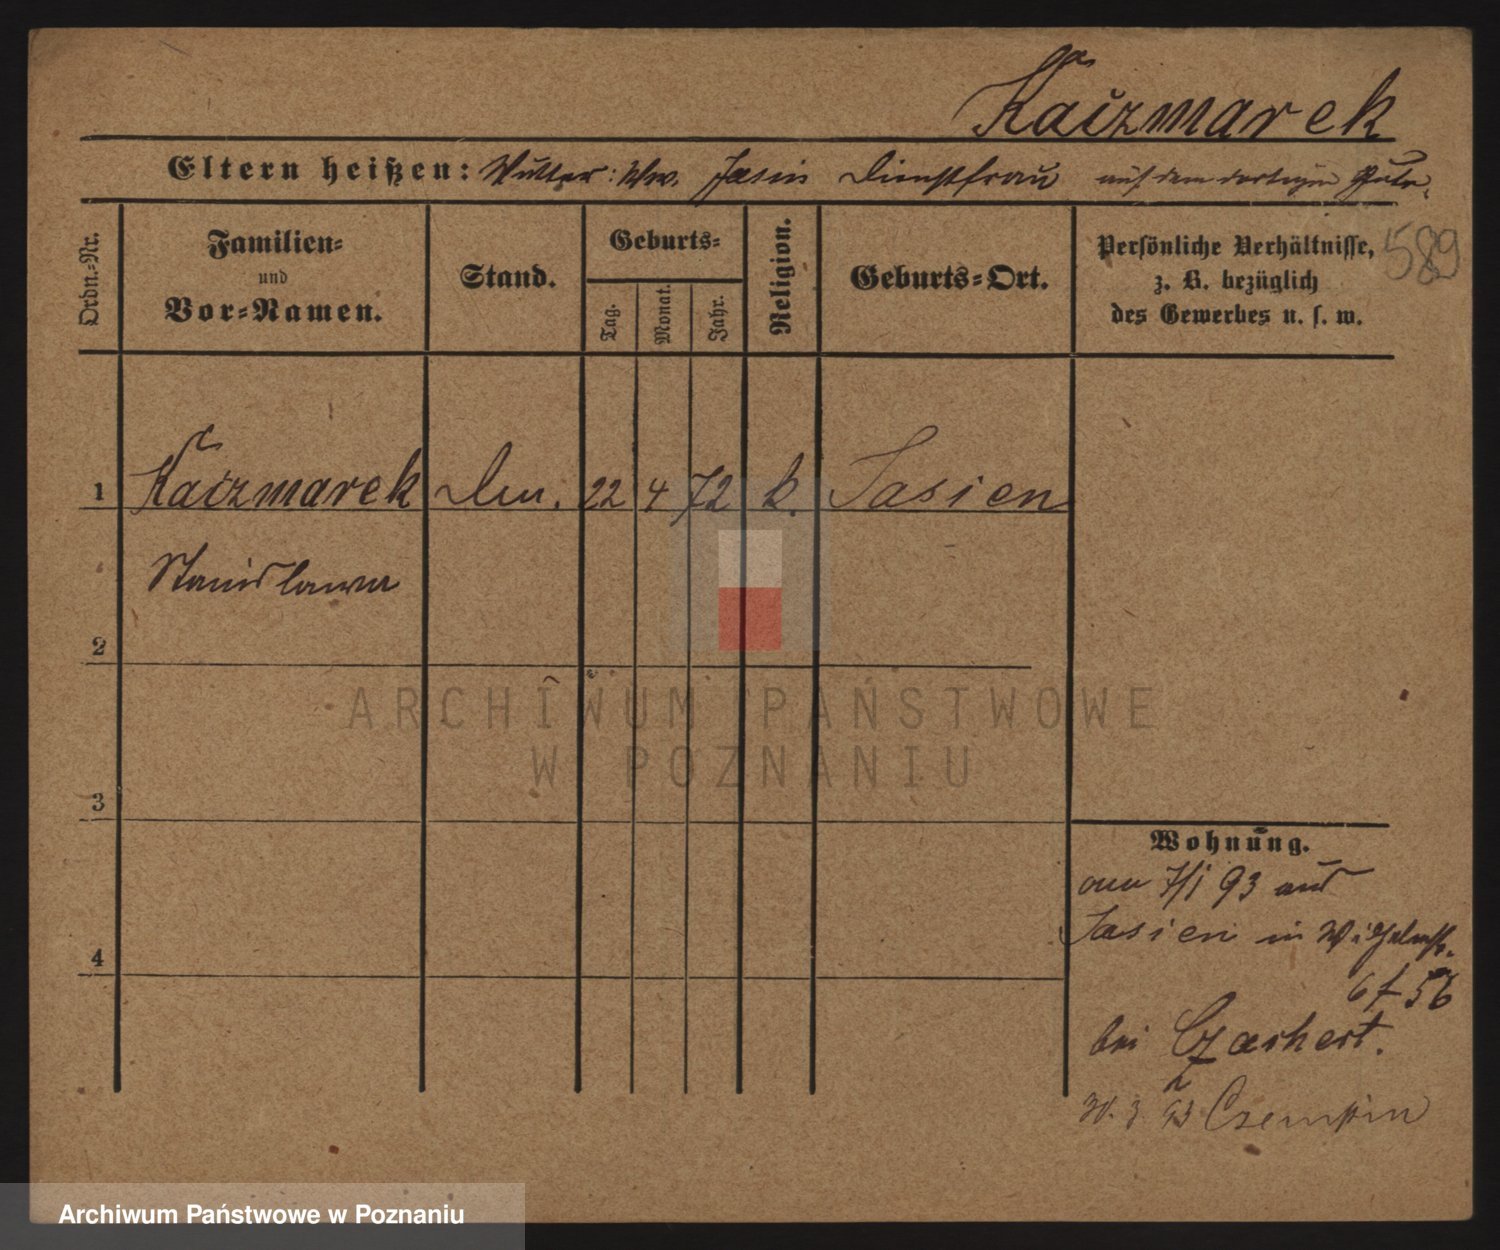 Kaczmarek
Eltern heißen: Mutter: Ww. Jasin Dienstfrau auf dem dortigen Gute.
589
Ordn.-Nr.
Familien-
und
Vor-Namen.
Stand.
Geburts-
Tag.
Monat.
Jahr.
Religion.
Geburts-Ort.
Persönliche Verhältnisse,
z. B. bezüglich
des Gewerbes u. s. w.
1 Kaczmarek 22 4 72 k. Jasien
Stanislawa
2
3
4
Wohnung.
am 7/1 93 aus
Jasien in Wilhelmstr.
bei
93 Czempin
ARCHIWUM PAŃSTWOWE
W POZNANIU
Archiwum Państwowe w Poznaniu